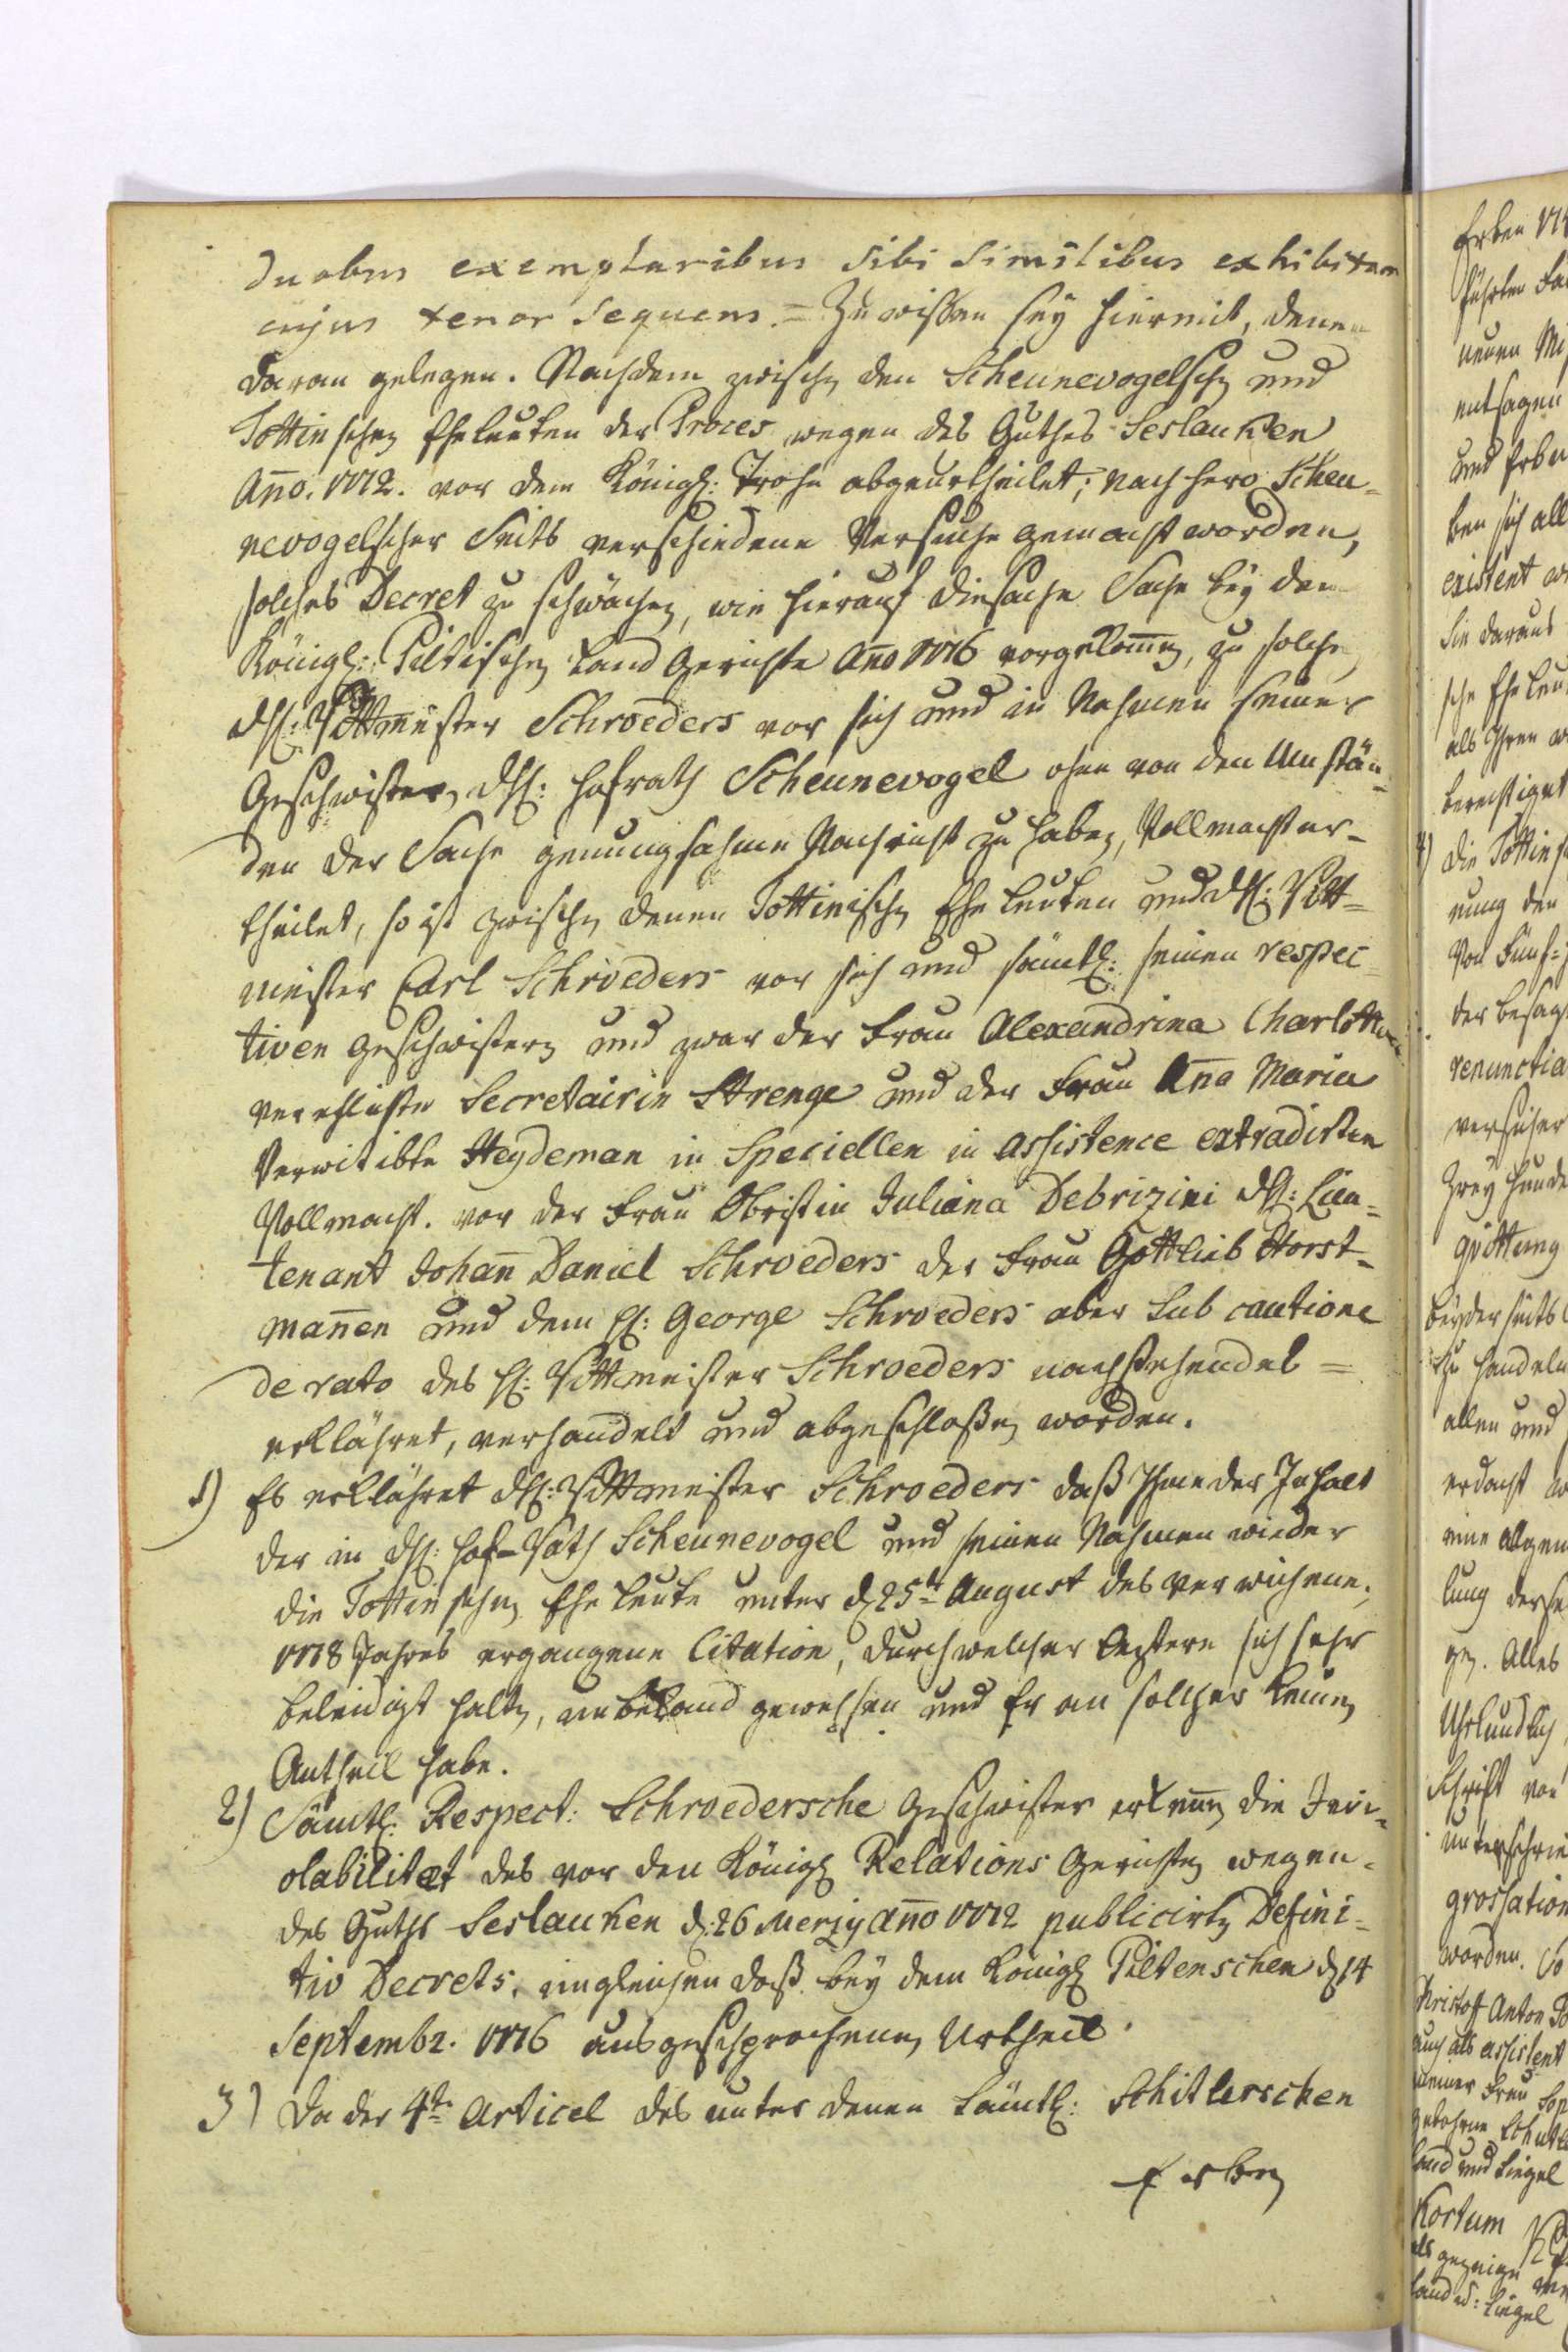 duobus exemplaribus sibi similibus exhibitam
cujus tenor sequens. = Zu wißen sey hiermit, denen
daran gelegen. Nachdem zwischen den Scheunevogelschen und
Tottinschen Eheleuten der Proces wegen des Guthes Seslauken
Año. 1772. vor dem Königl: abgeurtheilet; nachhero Scheu=
nevogelscher Seits verschiedene Versuche gemacht worden,
solches Decret zu schwächen, wie hierauf Sache bey dem
Königl: Piltischen Land Gerichte Año 1776 vorgekomen, zu solche
dH: Rittmeister Schroeders vor sich und in Nahmen seiner
Geschwister, dH: Hofrath Scheunevogel ohne von den Umstän=
den der Sache genungsahme Nachricht zu haben, Vollmacht er=
theilet, so ist zwischen denen Tottinischen Ehe Leuten und dH: Ritt=
meister Carl Schröeders vor sich und sämtl: seinen respec
tiven Geschwistern und zwar der Frau Alexandrina Charlotta
verehlichte Secretairin Strenge und der Frau Aña Maria
Verwitibte Heydeman in Speciellen in assistence extradirten
Vollmacht. vor der Frau Obristin Juliana Debrizini dH: Lieu=
tenant Johañ Daniel Schroeders der Frau Gottlieb Horst=
mañen und dem H: George Schroeders aber sub cautione
de rato des H: Rittmeister Schroeders nachstehendes =
erklähret, verhandelt und abgeschloßen worden.
1) Es erklähret dH: Rittmeister Schroeders daß Ihme der Inhalt
der in dH: Hof-Rath Scheunevogel und seinen Nahmen wieder
die Tottinschen Ehe Leute unter d 25t August des verwichene,
1778 Jahres ergangene Citation, durch welcher Leztere sich sehr
beleidigt halten, unbekand gewessen und Er an solcher keinen
Antheil habe.
2) Sämtl: Respect: Schroedersche Geschwister erkennen die Invi=
olabilitæt des vor den Königl Relations Gerichten wegen
des Guths Seslauken d: 26 Merzy año 1772 publicirten Defini=
tiv Decrets, imgleichen daß bey dem Königl Piltenschen d 14
Septembr. 1776 ausgesprochenen Urtheil.
3) Da der 4te Articel des unter denen sämtl: Schitlerschen
Erben